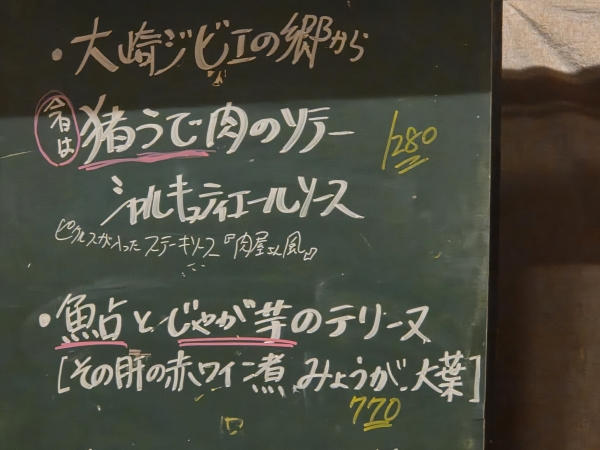 ・大崎ジビエの郷から
今日は 猪うで肉のソテー 1280
シャルキュティエールソース
ピクルスが入ったステーキソース『肉屋さん風』
・鮎とじゃが芋のテリーヌ
[その肝の赤ワイン煮、みょうが、大葉]
770